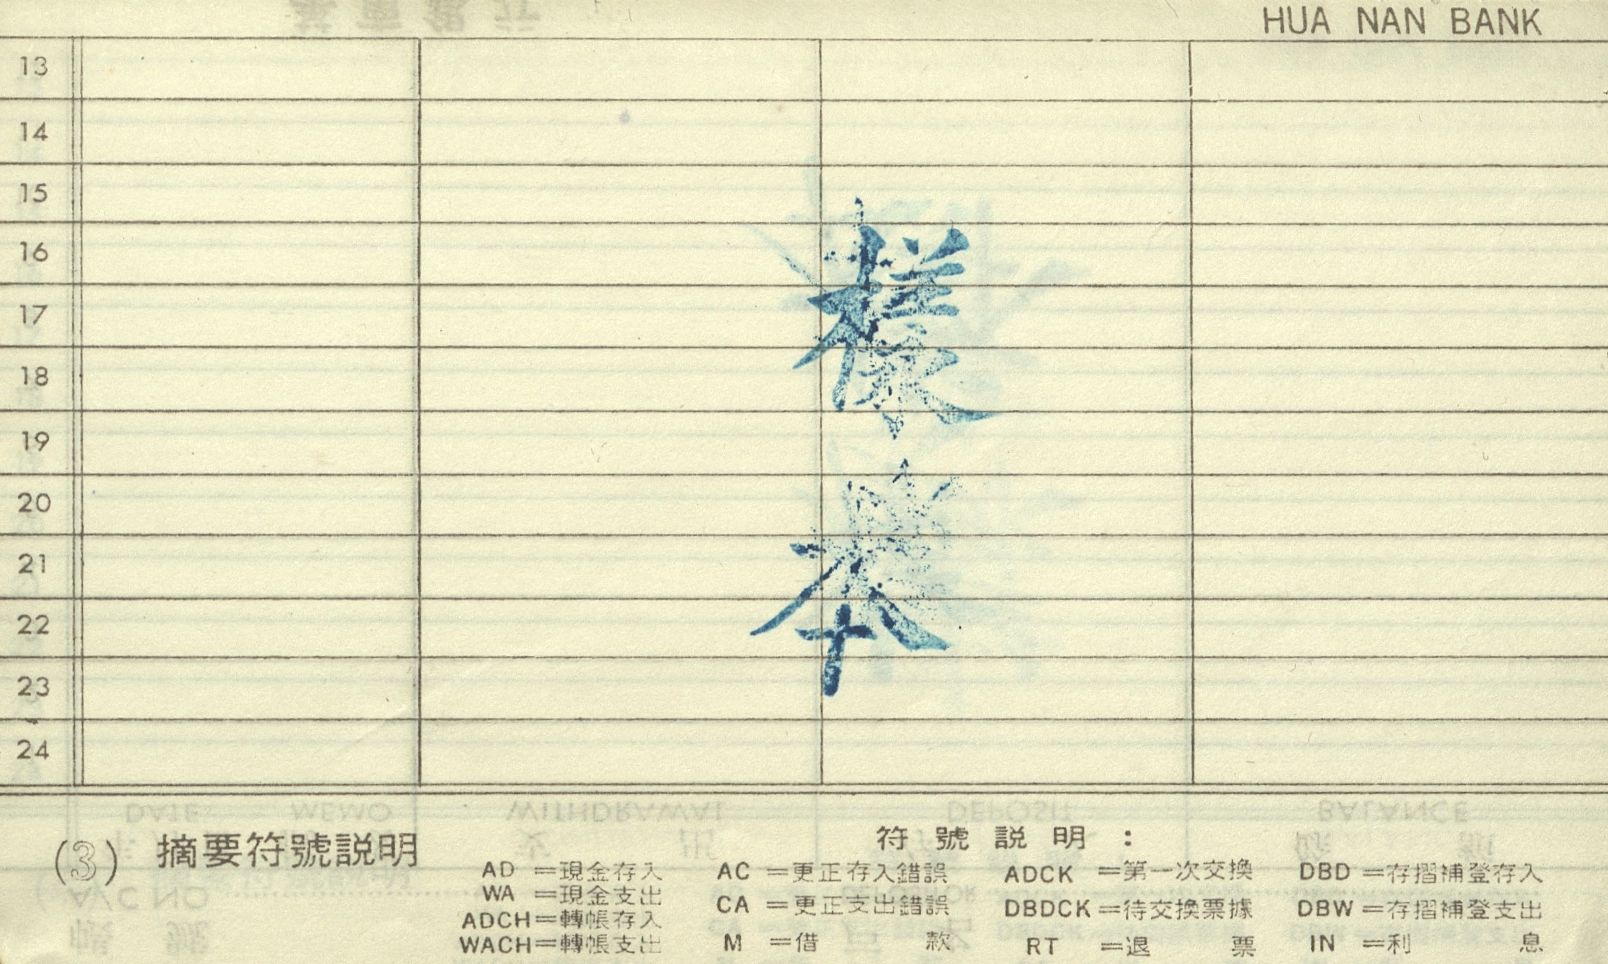 HUA NAN BANK
13
14
15
16
17
18
19
20
21
22
23
24
樣
本
(3) 摘要符號説明
符號説明：
AD =現金存入 AC =更正存入錯誤 ADCK =第一次交換 DBD =存摺補登存入
WA =現金支出 CA =更正支出錯誤 DBDCK =待交換票據 DBW =存摺補登支出
ADCH=轉帳存入 M =借款 RT =退票 IN =利息
WACH=轉帳支出